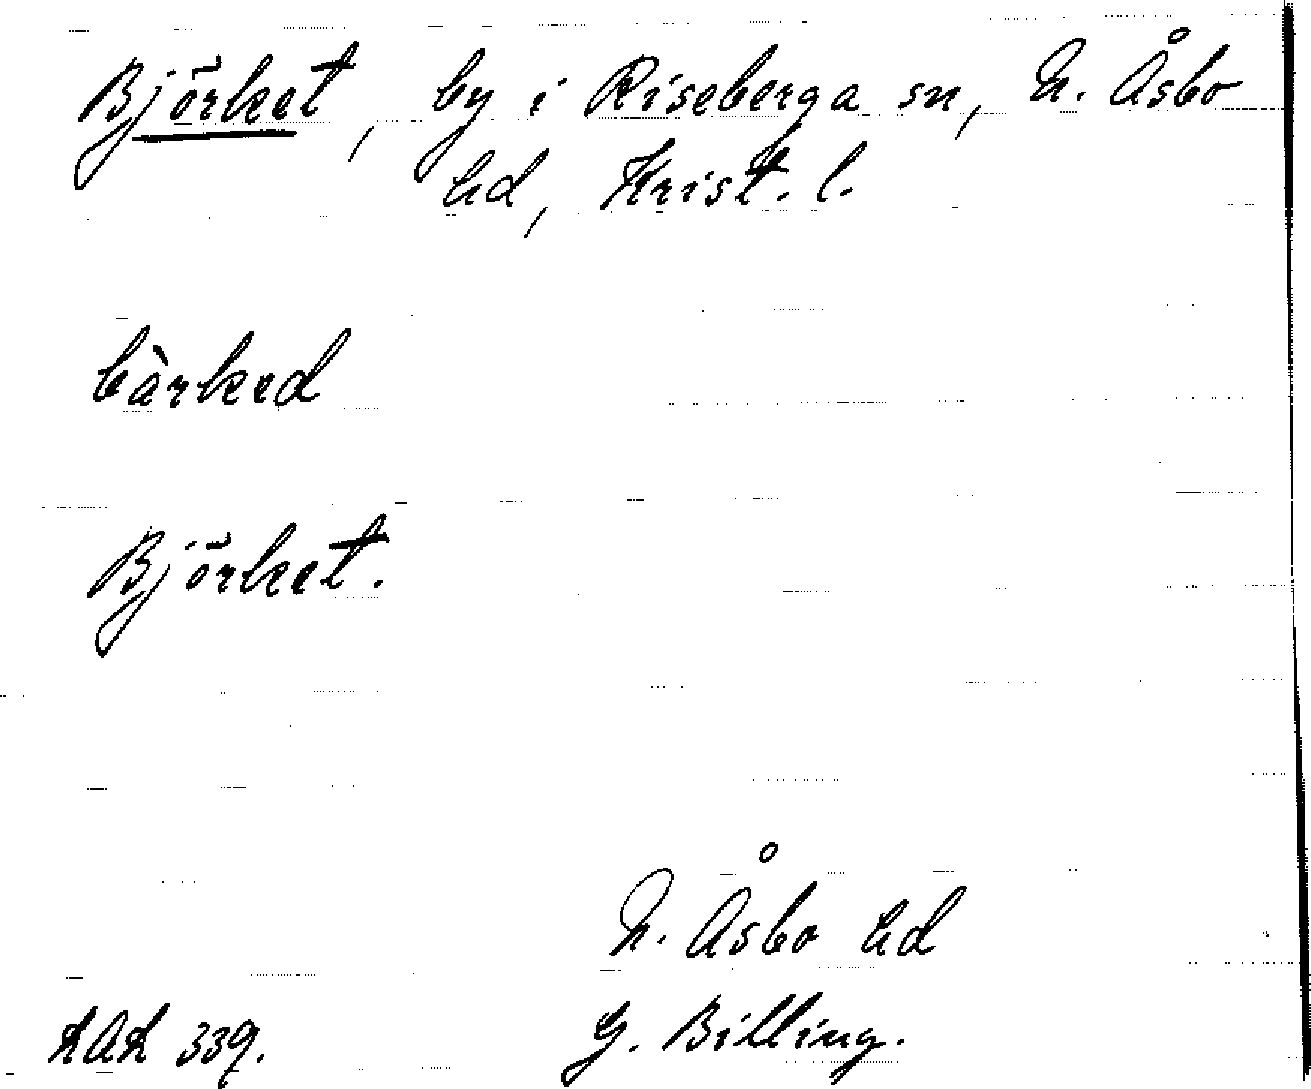 Björket, by i Riseberga sn, N. Åsbo
hd, Krist. l.
bàrked
Björket.
N. Åsbo hd
LAL 339. G. Billing.